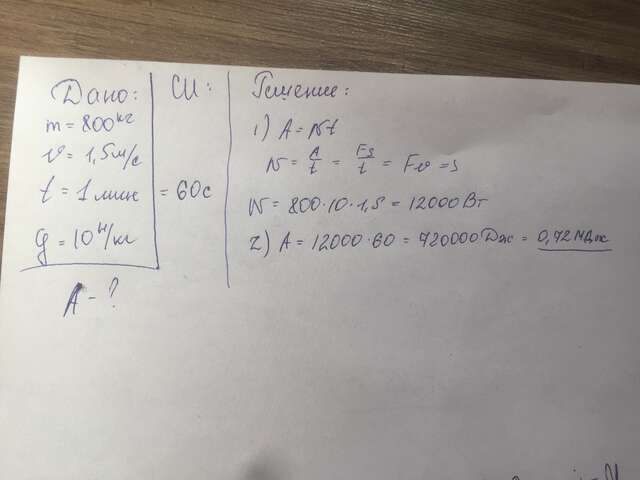 Дано:
m = 800 кг
υ = 1,5 м/с
t = 1 мин
g = 10 Н/кг
A - ?
СИ:
= 60 с
Решение:
1) A = Nt
N = A/t = FS/t = Fυ =>
N = 800·10·1,5 = 12000 Вт
2) A = 12000·60 = 720000 Дж = 0,72 МДж